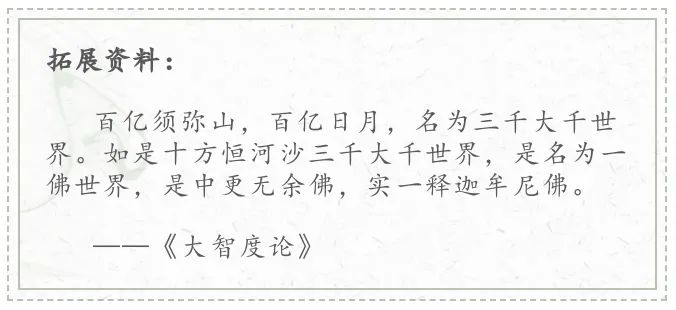 拓展资料：
百亿须弥山，百亿日月，名为三千大千世
界。如是十方恒河沙三千大千世界，是名为一
佛世界，是中更无余佛，实一释迦牟尼佛。
——《大智度论》